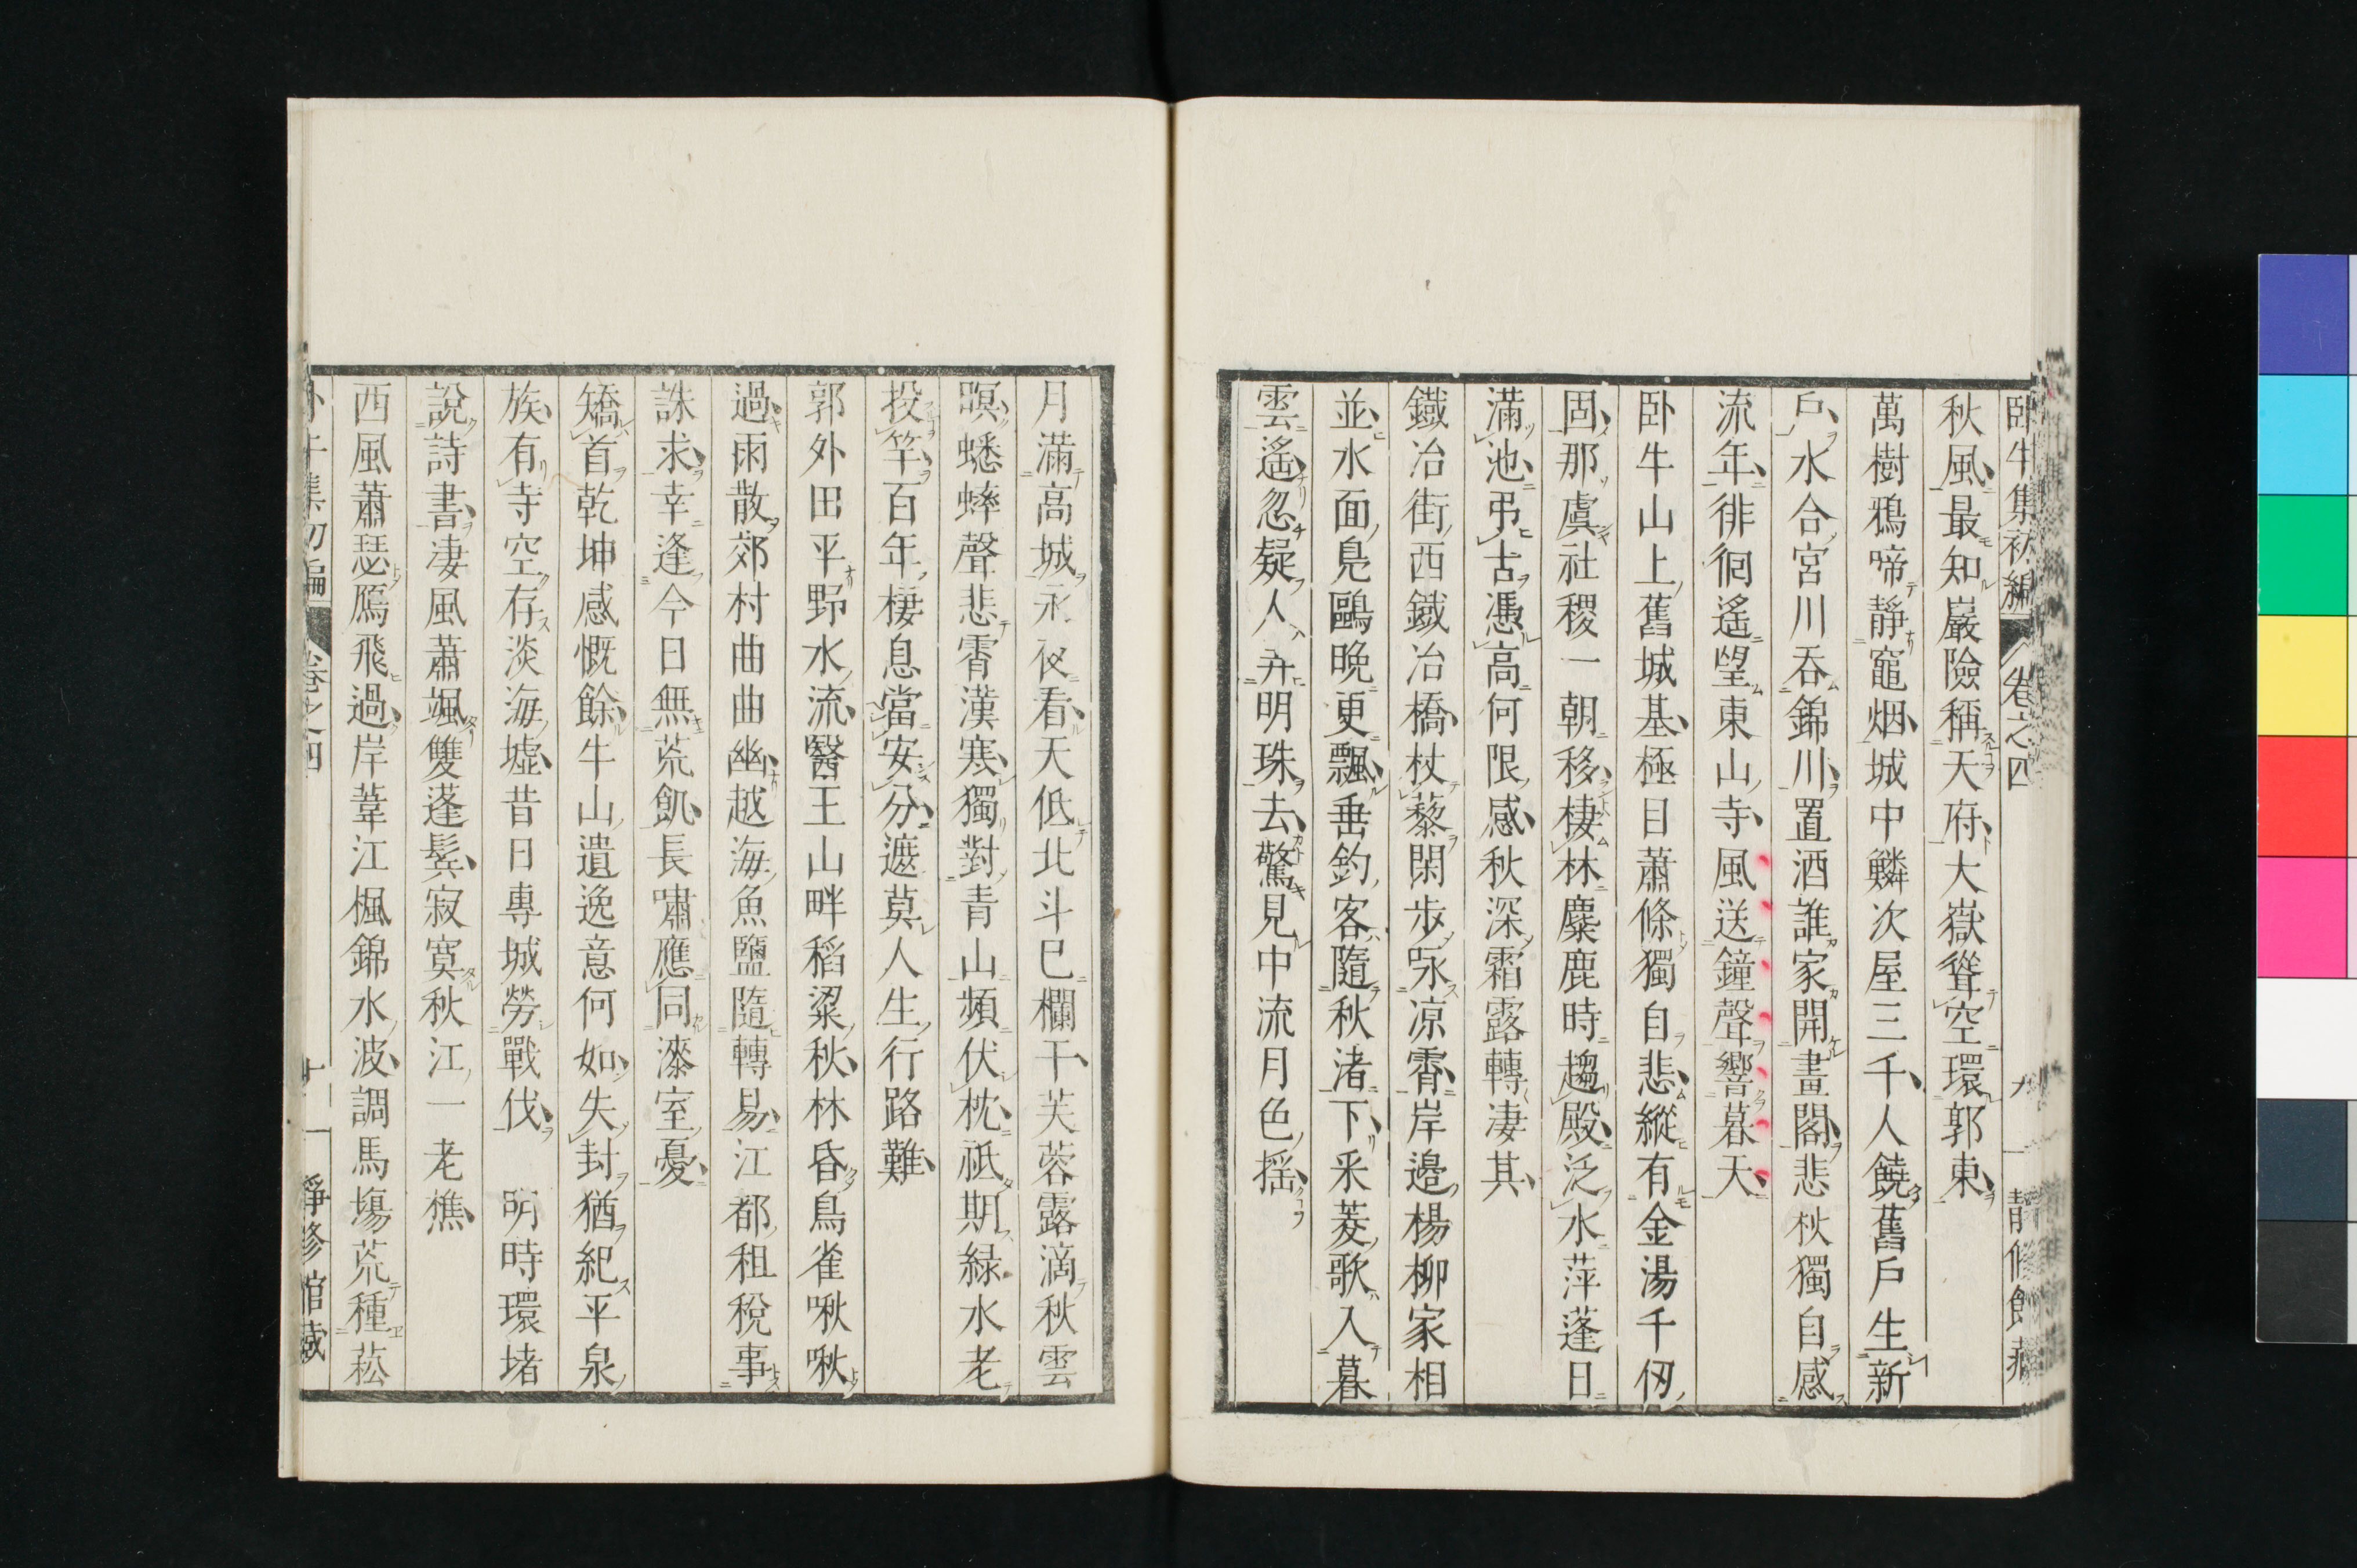 臥牛集初編 卷之四 九 靜修館藏
秋風最知巖險稱天府大嶽聳空環郭東
萬樹鴉啼靜竈烟城中鱗次屋三千人饒舊戶生新
戶水合宮川吞錦川置酒誰家開畫閣悲秋獨自感
流年徘徊遙望東山寺風送鐘聲響暮天
臥牛山上舊城基極目蕭條獨自悲縱有金湯千仞
固那虞社稷一朝移棲林麋鹿時趨殿泛水萍蓬日
滿池弔古憑高何限感秋深霜露轉凄其
鐵冶街西鐵冶橋杖藜閑步咏凉霄岸邊楊柳家相
並水面鳧鷗晚更飄垂釣客隨秋渚下采菱歌入暮
雲遙忽疑人弄明珠去驚見中流月色搖
月滿高城永夜看天低北斗已欄干芙蓉露滴秋雲
暝蟋蟀聲悲霄漢寒獨對青山頻伏枕祇期緑水老
投竿百年棲息當安分遮莫人生行路難
郭外田平野水流醫王山畔稻粱秋林昏鳥雀啾啾
過雨散郊村曲曲幽越海魚鹽隨轉易江都租稅事
誅求幸逢今日無荒飢長嘯應同漆室憂
矯首乾坤感慨餘牛山遺逸意何如失封猶紀平泉
族有寺空存淡海墟昔日專城勞戰伐 明時環堵
說詩書凄風蕭颯雙蓬鬂寂寞秋江一老樵
西風蕭瑟鴈飛過岸葦江楓錦水波調馬塲荒種菘
卷之四 十一 靜修館藏